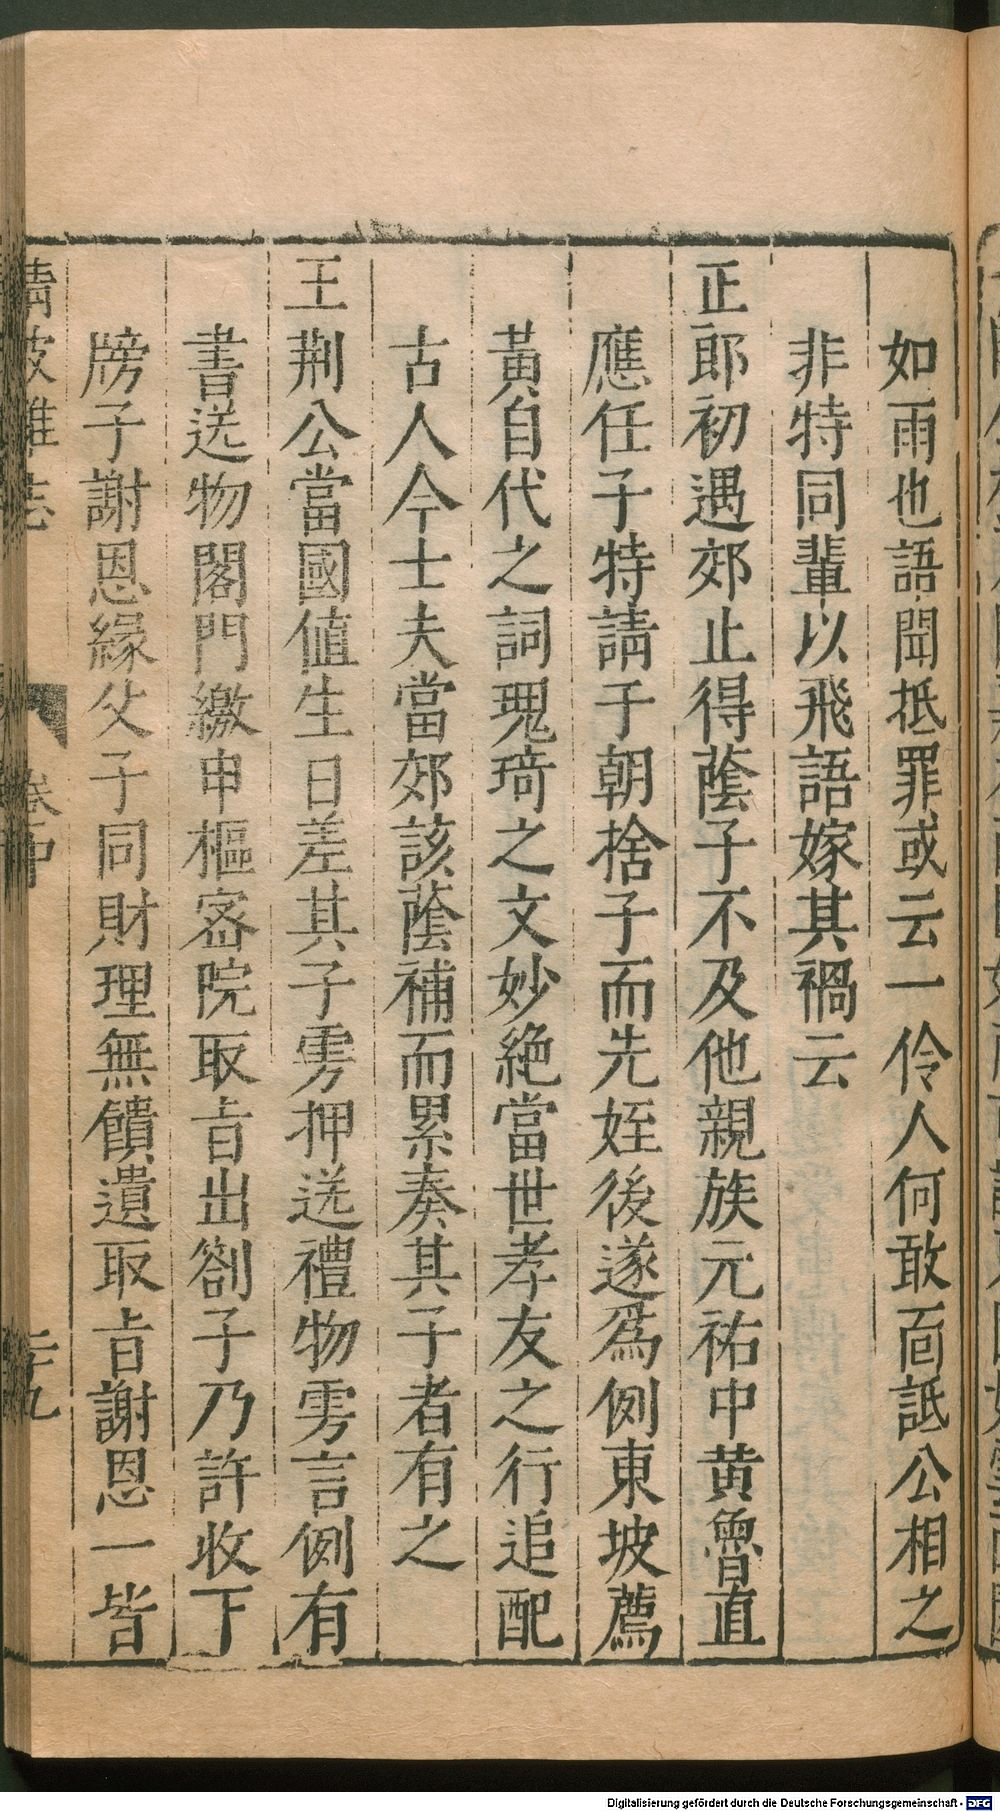 如雨也語聞抵罪或云一伶人何敢面詆公相之
非特同輩以飛語嫁其禍云
正郎初遇郊止得蔭子不及他親族元祐中黄魯直
應任子特請于朝捨子而先姪後遂爲例東坡薦
黃自代之詞瑰琦之文妙絶當世孝友之行追配
古人今士夫當郊該蔭補而累奏其子者有之
王荆公當國値生日差其子雱押送禮物雱言例有
書送物閣門繳申樞密院取旨出劄子乃許收下
牓子謝恩緣父子同財理無饋遺取旨謝恩一皆
清波雜志 卷中 二十九
Digitalisierung gefördert durch die Deutsche Forschungsgemeinschaft - DFG